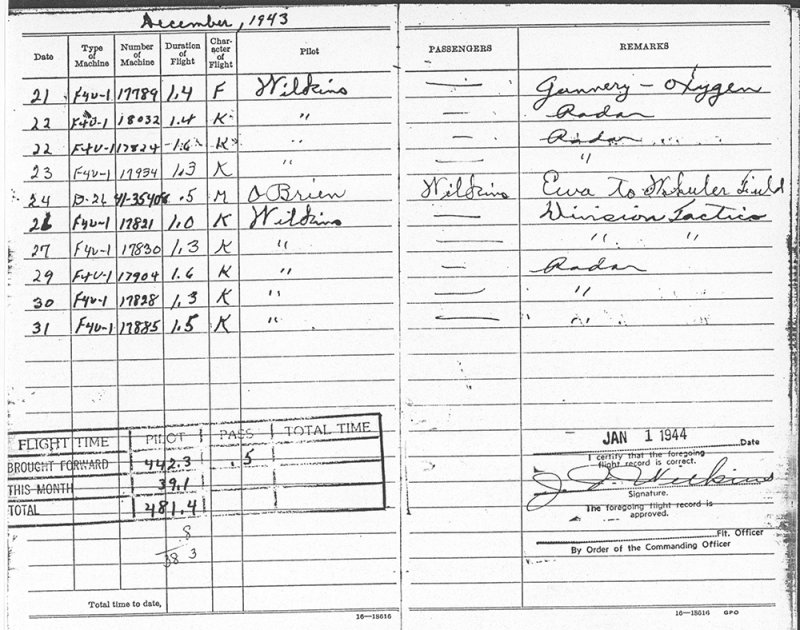 December, 1943
Date Type of Machine Number of Machine Duration of Flight Character of Flight Pilot PASSENGERS REMARKS
21 F4U-1 17789 1.4 F Wilkins — Gunnery - Oxygen
22 F4U-1 18032 1.4 K " — Radar
22 F4U-1 17824 1.6 K " — Radar
23 F4U-1 17934 1.3 K " — "
24 B-26 41-35408 .5 M O'Brien Wilkins Ewa to Wheeler Field
26 F4U-1 17821 1.0 K Wilkins — Division Tactics
27 F4U-1 17830 1.3 K " — " "
29 F4U-1 17904 1.6 K " — Radar
30 F4U-1 17828 1.3 K " — "
31 F4U-1 17885 1.5 K " — "
FLIGHT TIME PILOT PASS TOTAL TIME
BROUGHT FORWARD 442.3 .5
THIS MONTH 39.1
TOTAL 481.4
8
38 3
Total time to date,
16—18616
JAN 1 1944 Date
I certify that the foregoing
flight record is correct.
J. Wilkins
Signature.
The foregoing flight record is
approved.
Flt. Officer
By Order of the Commanding Officer
16—18616 GPO